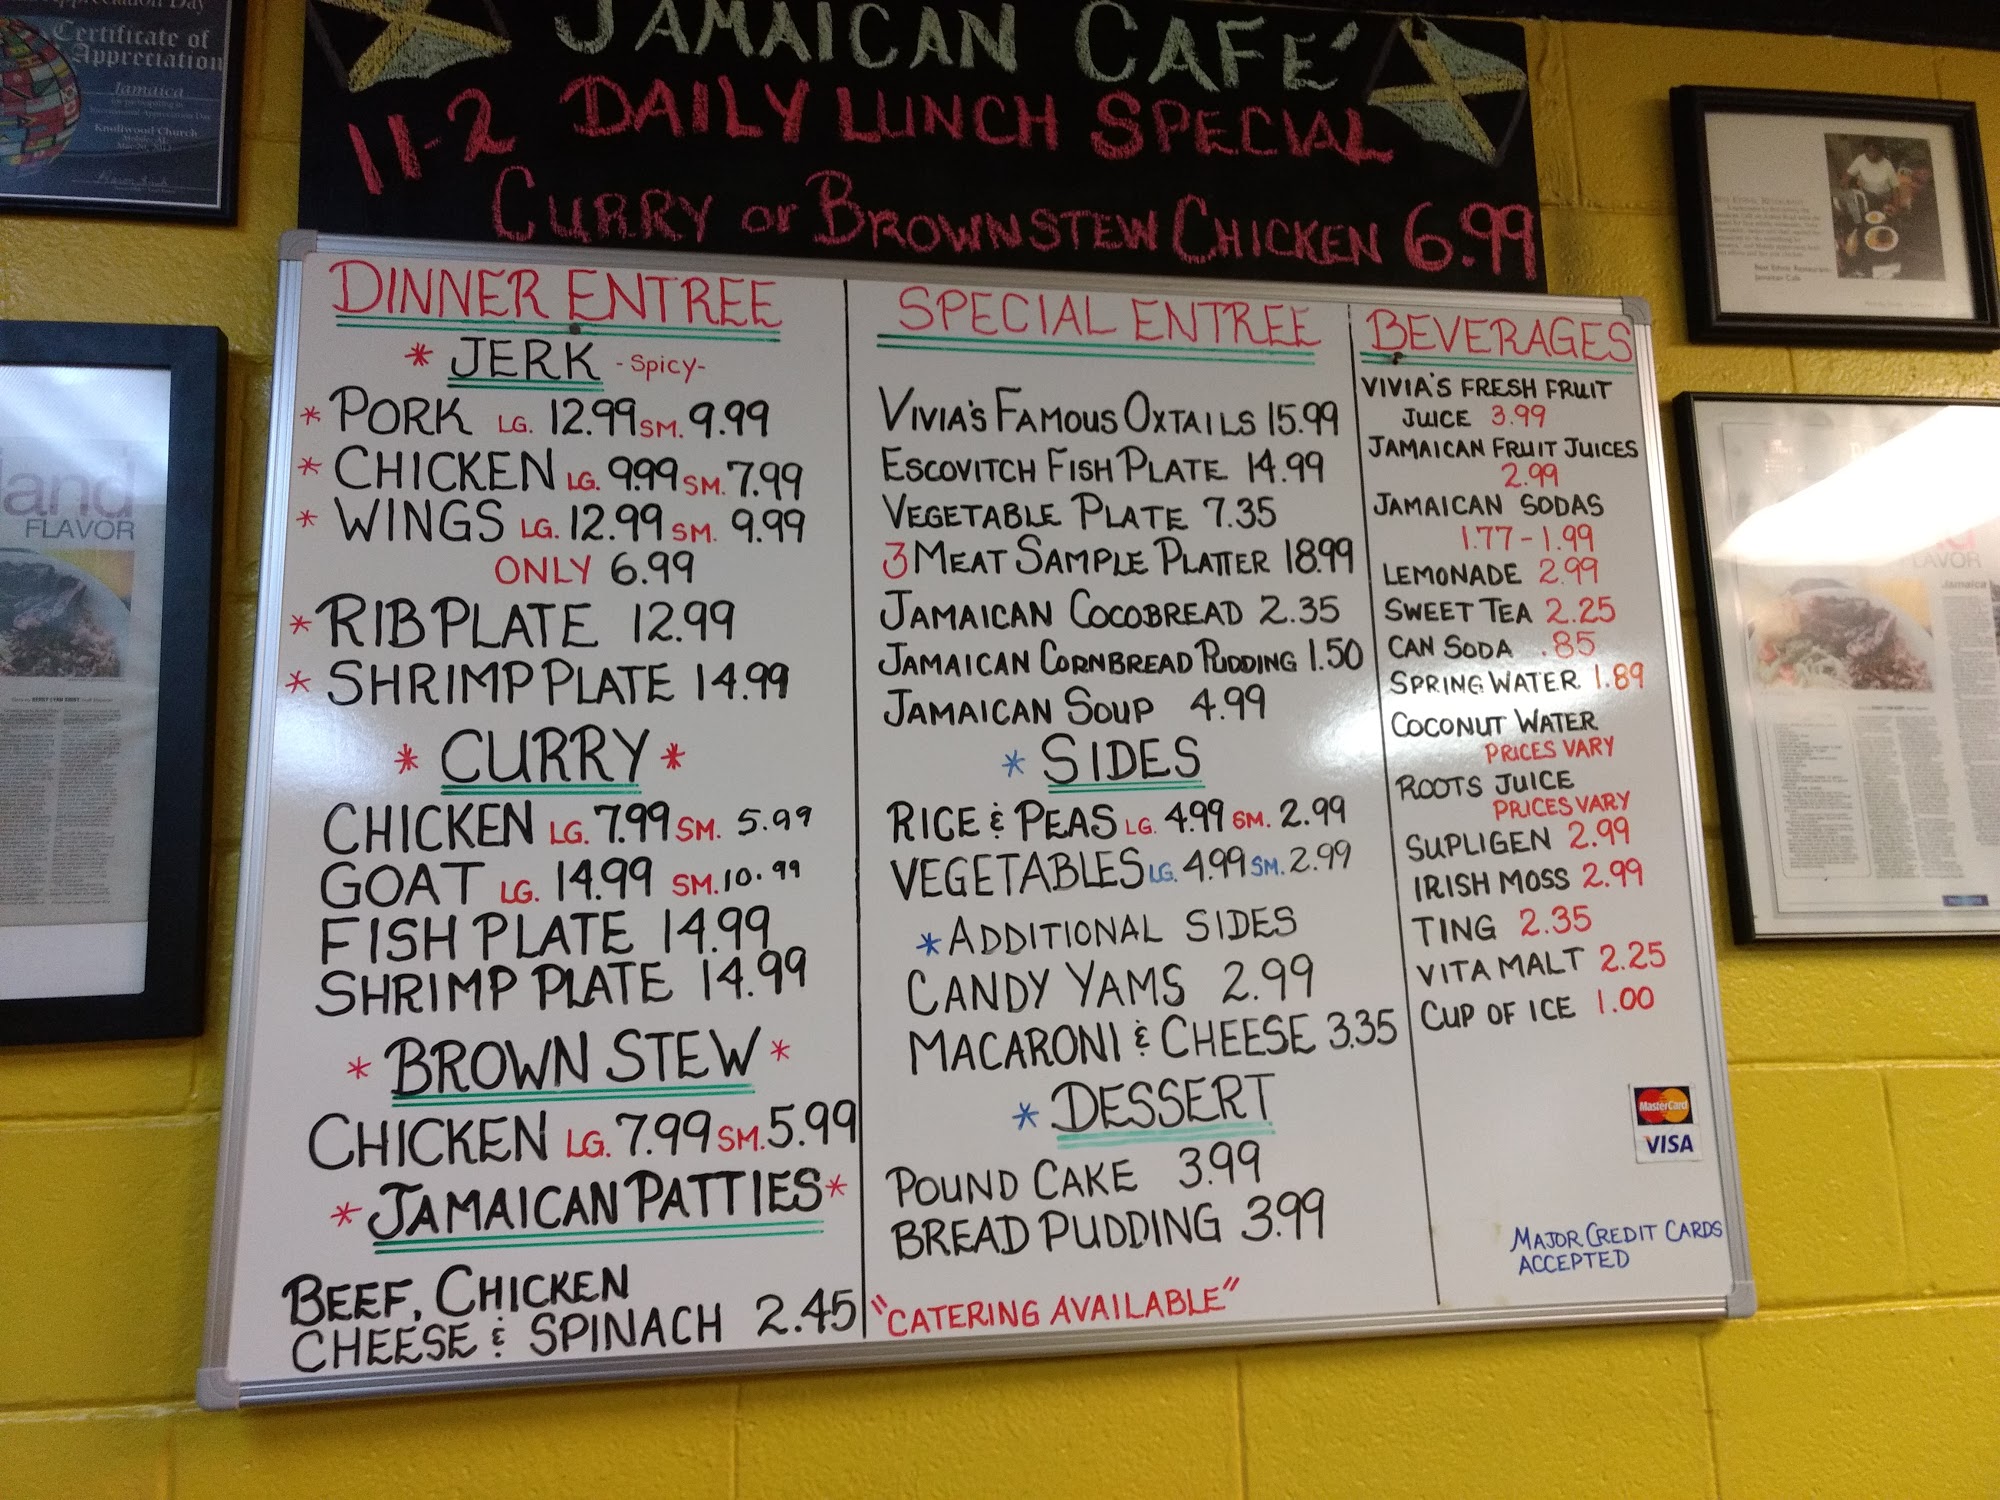 Appreciation Day
Certificate of
Appreciation
Jamaica
Knollwood Church
JAMAICAN CAFE'
11-2 DAILY LUNCH SPECIAL
CURRY or BROWNSTEW CHICKEN 6.99
DINNER ENTREE
* JERK - SPICY -
* PORK LG. 12.99 SM. 9.99
* CHICKEN LG. 9.99 SM. 7.99
* WINGS LG. 12.99 SM. 9.99
ONLY 6.99
* RIB PLATE 12.99
* SHRIMP PLATE 14.99
* CURRY *
CHICKEN LG. 7.99 SM. 5.99
GOAT LG. 14.99 SM. 10.99
FISH PLATE 14.99
SHRIMP PLATE 14.99
* BROWN STEW *
CHICKEN LG. 7.99 SM. 5.99
* JAMAICAN PATTIES *
BEEF, CHICKEN
CHEESE & SPINACH 2.45
SPECIAL ENTREE
VIVIA'S FAMOUS OXTAILS 15.99
ESCOVITCH FISH PLATE 14.99
VEGETABLE PLATE 7.35
3 MEAT SAMPLE PLATTER 18.99
JAMAICAN COCOBREAD 2.35
JAMAICAN CORNBREAD PUDDING 1.50
JAMAICAN SOUP 4.99
* SIDES
RICE & PEAS LG. 4.99 SM. 2.99
VEGETABLES LG. 4.99 SM. 2.99
* ADDITIONAL SIDES
CANDY YAMS 2.99
MACARONI & CHEESE 3.35
* DESSERT
POUND CAKE 3.99
BREAD PUDDING 3.99
"CATERING AVAILABLE"
BEVERAGES
VIVIA'S FRESH FRUIT
JUICE 3.99
JAMAICAN FRUIT JUICES
2.99
JAMAICAN SODAS
1.77 - 1.99
LEMONADE 2.99
SWEET TEA 2.25
CAN SODA .85
SPRING WATER 1.89
COCONUT WATER
PRICES VARY
ROOTS JUICE
PRICES VARY
SUPLIGEN 2.99
IRISH MOSS 2.99
TING 2.35
VITA MALT 2.25
CUP OF ICE 1.00
MasterCard
VISA
MAJOR CREDIT CARDS
ACCEPTED
land
FLAVOR
Best Ethnic Restaurant:
Jamaican Cafe
FLAVOR
Jamaica